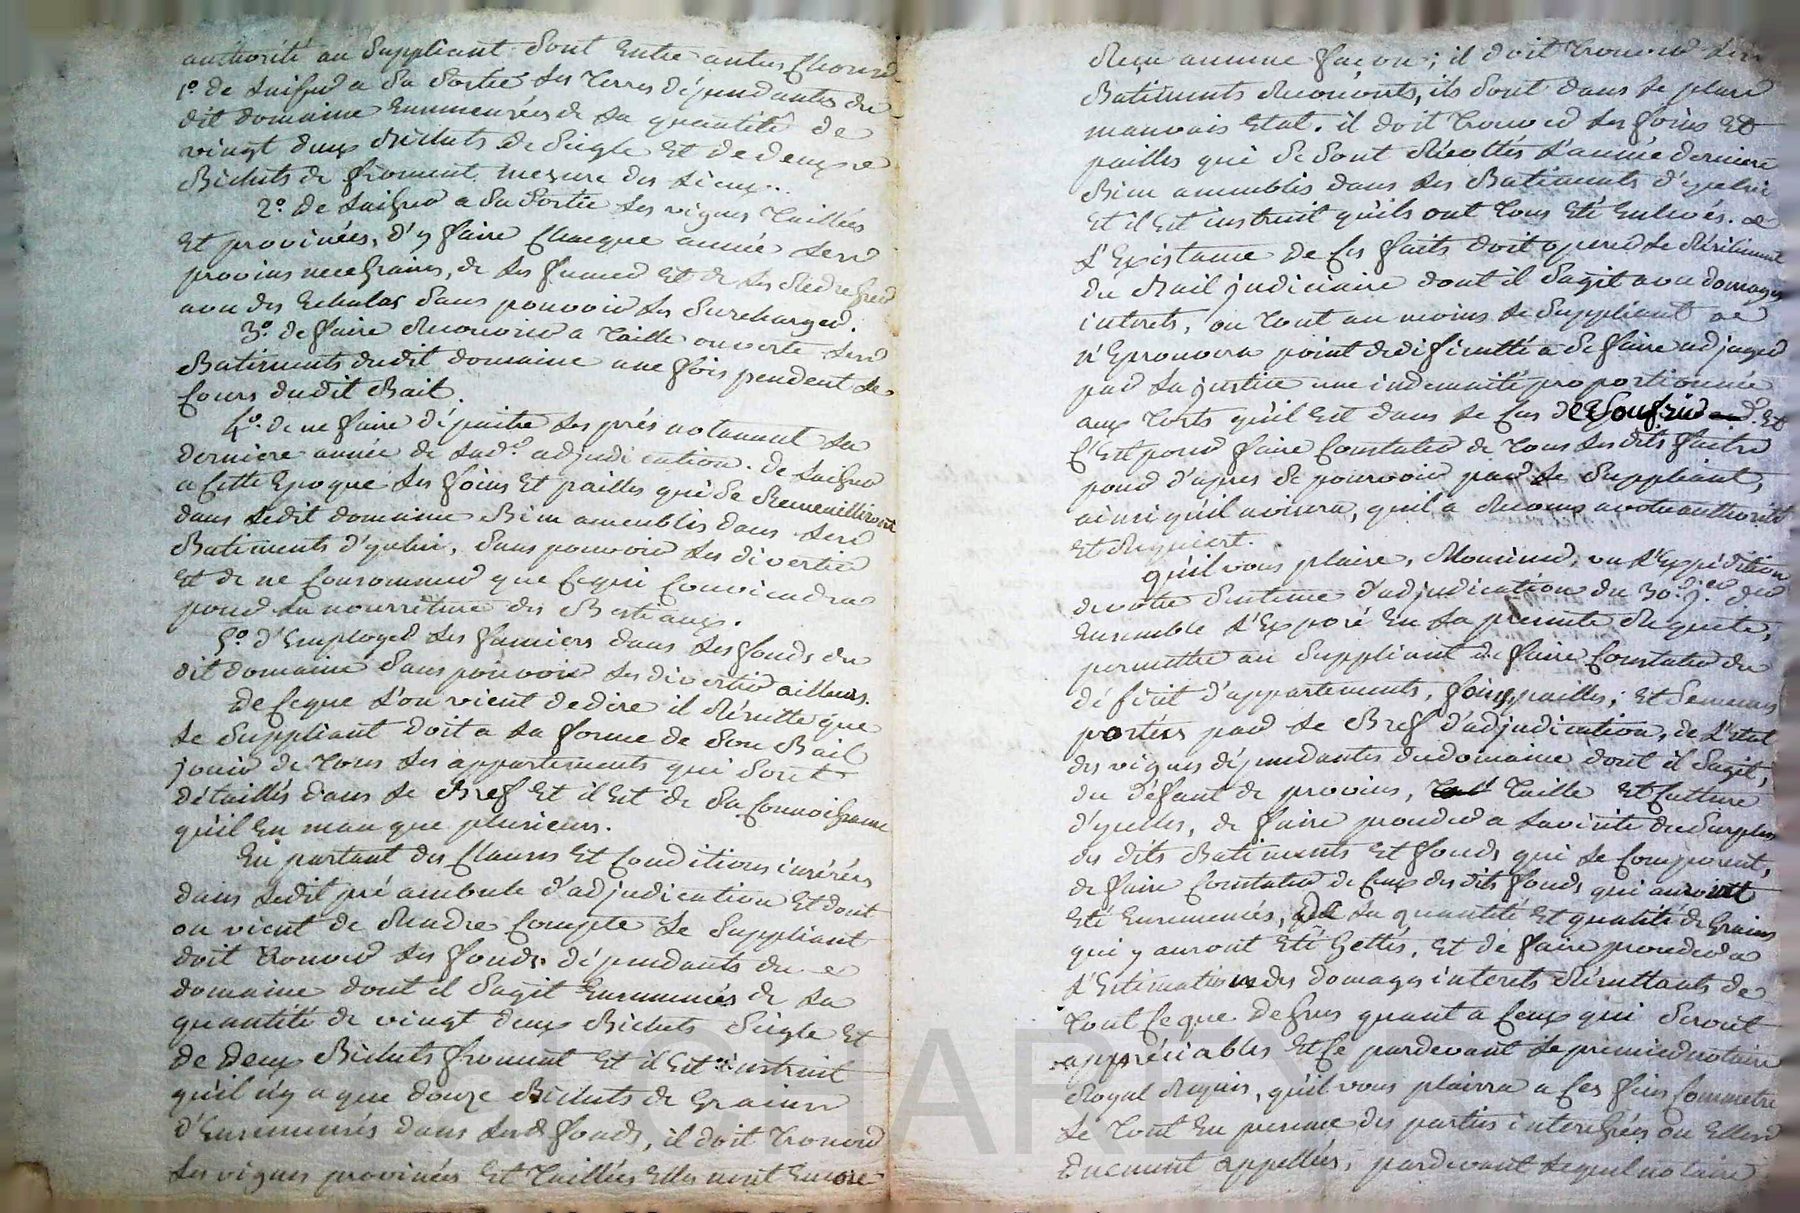 authorité au suppliant sont entre autres choses
1º. de laisser a sa sortie les terres dépendantes du
dit domaine enummencées de la quantité de
vingt deux Bichets de Seigle et de deux
Bichets de froment, mesure des lieux..
2º. de laisser a sa sortie les vignes taillées
et provinées, d'y faire chaque année les
provins necessaires, de les fumer et de les
avec des Echalas sans pouvoir les surcharger.
3º. de faire recouvrir a taille ouverte les
Batiments dudit domaine une fois pendent le
Cours dudit Bail.
4º. de ne faire dépaitre les prés notamment la
derniere année de lad.º adjudication. de laisser
a cette Epoque les foins et pailles qui se recueilliront
dans ledit domaine Bien ameublis dans les
Batiments d'yceluy, sans pouvoir les divertir
et de ne consommer que ce qui conviendra
pour la nourriture des Besteaux.
5º. d'Employer les fumiers dans les fonds du
dit domaine sans pouvoir les divertir ailleurs.
de ce que l'on vient de dire il résulte que
le suppliant doit a la forme de son Bail
jouir de tous les appartements qui sont
détaillés dans le Bref et il est de sa connoissance
qu'il en manque plusieurs.
En partant des clauses et conditions insérées
dans ledit pré ambule d'adjudication et dont
on vient de rendre compte le suppliant
doit trouver les fonds dépendants du
domaine dont il s'agit Enummencés de la
quantité de vingt deux Bichets Seigle et
de deux Bichets froment et il est instruit
qu'il n'y a que douze Bichets de Grains
d'Enummencés dans les fonds, il doit trouver
les vignes provinées et taillées Elles n'ont Encore
Reçu aucune façon; il doit trouver les
Batiments recouverts, ils sont dans le plus
mauvais Etat. il doit trouver les foins et
pailles qui se sont récoltés l'année derniere
Bien ameublis dans les Batiments d'yceluy
et il est instruit qu'ils ont tous été enlevés.
L'Existance de ces faits doit operer le résiliment
du Bail judiciaire dont il s'agit avec domages
interets, ou tout au moins le suppliant
n'Eprouvera point de difficulté a se faire adjuger
par la justice une indemnité proportionnée
aux torts qu'il est dans le cas de souffrir et
c'est pour faire constater de tous lesdits faits
pour d'apres se pourvoir par le suppliant,
ainsi qu'il avisera, qu'il a recours a votre authorité
et requiert.
qu'il vous plaise, Monsieur, vu l'Expédition
de votre sentence d'adjudication du 30.
Ensemble l'Exposé En la presente Requete,
permettre au suppliant de faire constater du
déficit d'appartements, foins, pailles, et semences
portées par le Bref d'adjudication, de l'etat
des vignes dépendantes du domaine dont il s'agit,
du défaut de provins, taille et culture
d'ycelles, de faire proceder a la visite du surplus
des dits Batiments et fonds qui le composent,
de faire constater de ceux desdits fonds qui auroient
été Enummencés, de la quantité et qualité de Grains
qui y auront été Gettés, et de faire proceder a
l'Estimation des domages interets résultants de
tout ce que dessus quant a ceux qui seront
appréciables et ce pardevant le premier notaire
Royal requis, qu'il vous plaira a ces fins commetre
le tout En presence des parties interessées ou Elles
duement appellées, pardevant lequel notaire
CHARLY